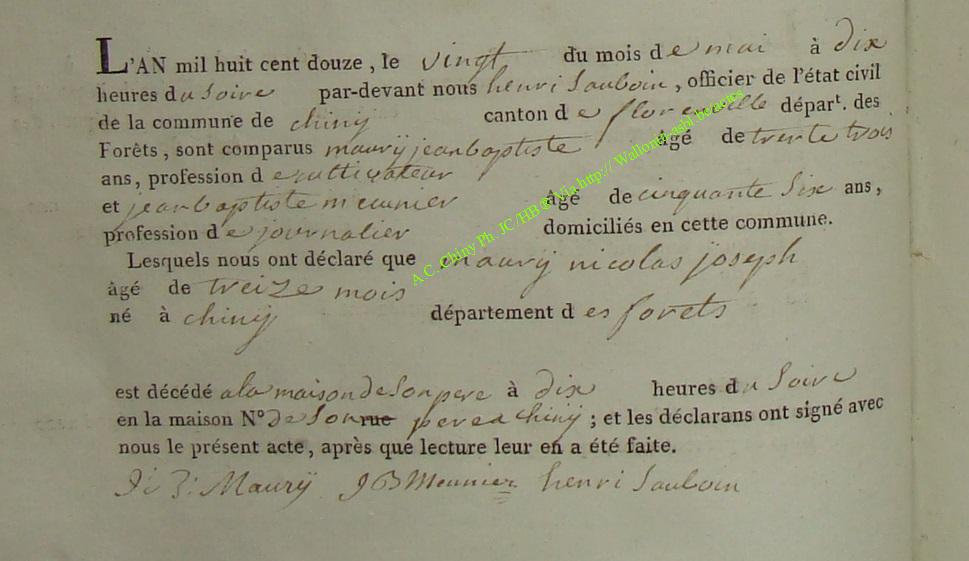 L'AN mil huit cent douze, le vingt du mois de mai à dix
heures du soire par-devant nous henri Sauboin, officier de l'état civil
de la commune de chinÿ canton de florenville départ. des
Forêts, sont comparus maurÿ jeanbaptiste âgé de trente trois
ans, profession de cultivateur
et jeanbaptiste meunier âgé de cinquante Six ans,
profession de journalier domiciliés en cette commune.
Lesquels nous ont déclaré que maurÿ nicolas joseph
âgé de treize mois
né à chinÿ département des forets
est décédé a la maison de Son pere à dix heures du Soire
en la maison N° de Son rue pere a chinÿ ; et les déclarans ont signé avec
nous le présent acte, après que lecture leur en a été faite.
J: B: Maurÿ J B Meunier henri Sauboin
A.C. Chiny Ph JC/HB @ Via http:// Wallonia